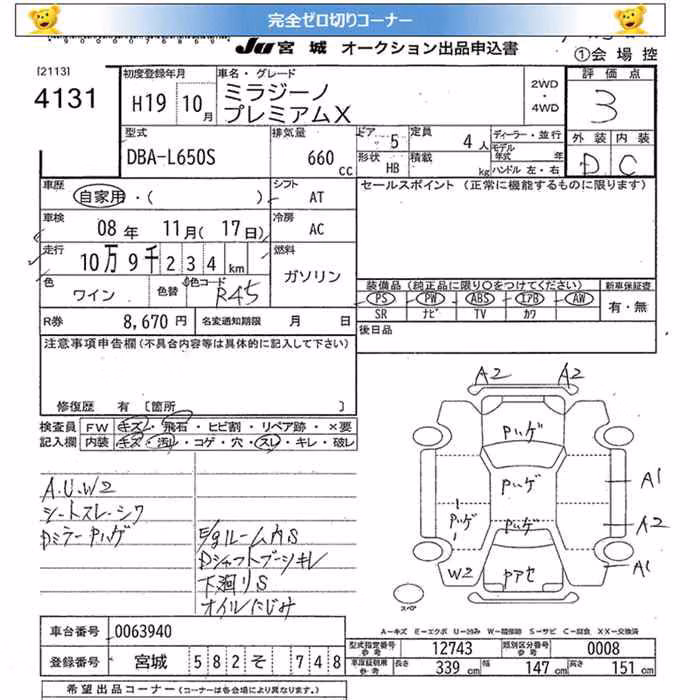 完全ゼロ切りコーナー
JU 宮城 オークション出品申込書
①会場控
[2113]
4131
初度登録年月
H19 10月
車名・グレード
ミラジーノ
プレミアムX
2WD
・
4WD
評価点
3
外装 内装
D C
型式
DBA-L650S
排気量
660 cc
ドア 5
定員 4人
形状 HB
積載 kg
ディーラー・並行
モデル年式 年式
ハンドル 左・右
車歴
自家用・( )
シフト AT
セールスポイント (正常に機能するものに限ります)
車検
08年 11月(17日)
冷房 AC
走行
10万9千234km
燃料
ガソリン
色
ワイン
色替
色コード
R45
装備品 (純正品に限り○をつけてください)
新車保証書
PS PW ABS エアB AW
SR ナビ TV カワ
有・無
R券 8,670円
名変通知期限 月 日
後日品
注意事項申告欄(不具合内容等は具体的に記入して下さい)
修復歴 有 〔箇所 〕
検査員
記入欄
FW キズ・飛石・ヒビ割・リペア跡・×要
内装 キズ・汚レ・コゲ・穴・スレ・キレ・破レ
A.U.W2
シートスレ・シワ
Dミラー Pハゲ
E/gルーム内S
Dシャフトブーツキレ
下廻りS
オイルにじみ
A2 A2
Pハゲ
Pハゲ
A1
Pハゲ
Pハゲ
A2
W2
Pアセ
A1
スペア
A-キズ E-エクボ U-凹み W-補修跡 S-サビ C-腐食 XX-交換済
車台番号 0063940
型式指定番号 参考 12743
類別区分番号 参考 0008
登録番号 宮城 582 そ 748
車庫証明用 参考 長さ 339cm 幅 147cm 高さ 151cm
希望出品コーナー (コーナーは各会場により異なります。)